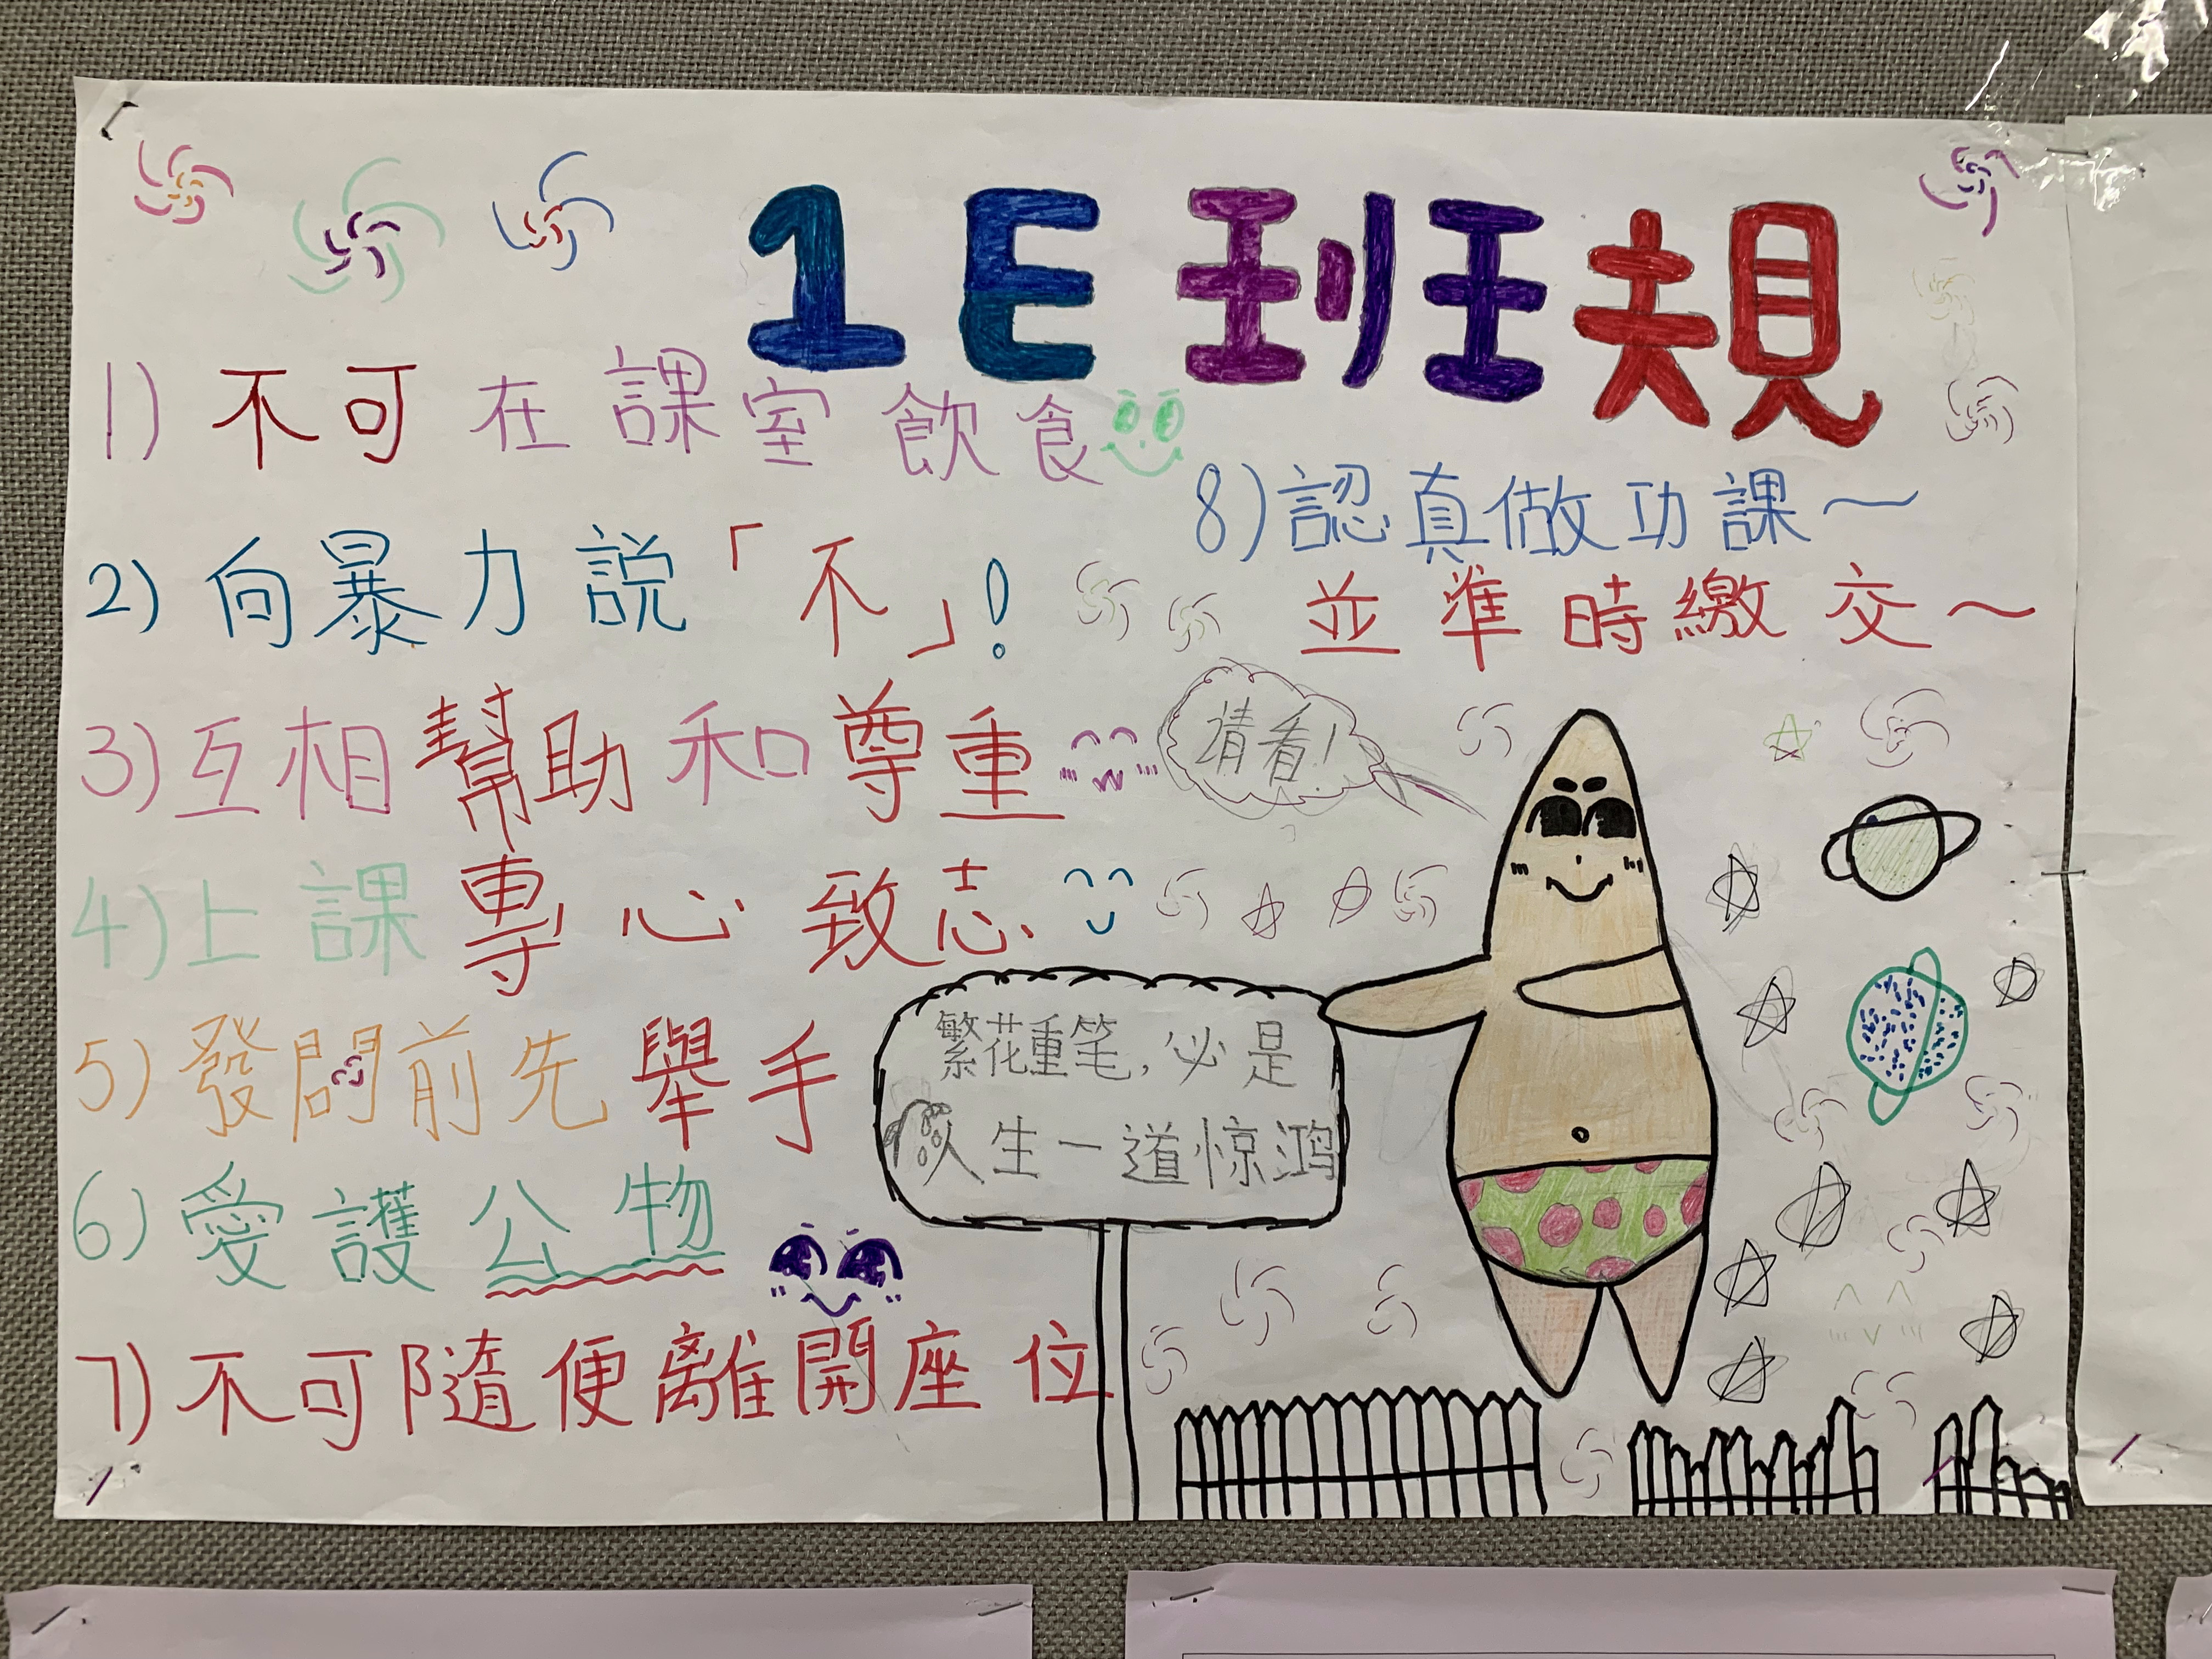 1E班規
1) 不可在課室飲食
2) 向暴力説「不」!
3) 互相幫助和尊重
4) 上課專心致志
5) 發問前先舉手
6) 愛護公物
7) 不可隨便離開座位
8) 認真做功課~
並準時繳交~
请看!
繁花重笔,必是
人生一道惊鸿